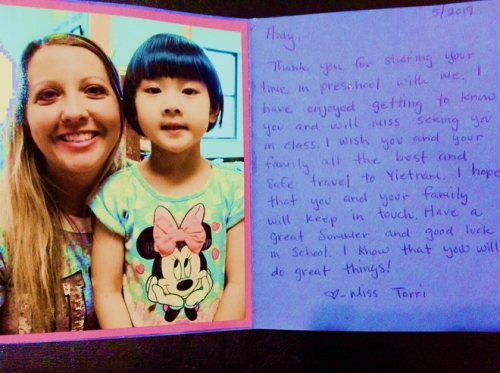 5/2019
Amy,
Thank you for sharing your
time in preschool with me. I
have enjoyed getting to know
you and will miss seeing you
in class. I wish you and your
family all the best and
safe travel to Vietnam. I hope
that you and your family
will keep in touch. Have a
great summer and good luck
in School. I know that you will
do great things!
♡- Miss Torri